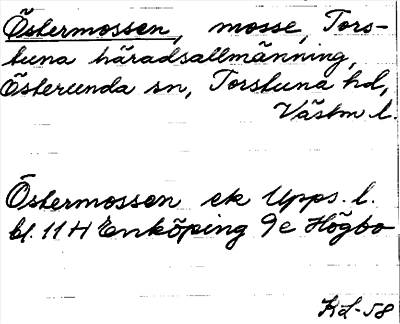 Östermossen, mosse, Tors-
tuna häradsallmänning,
Österunda sn, Torstuna hd,
Västm l.
Östermossen ek Upps. l.
bl. 11 H Enköping 9e Högbo
KL-58